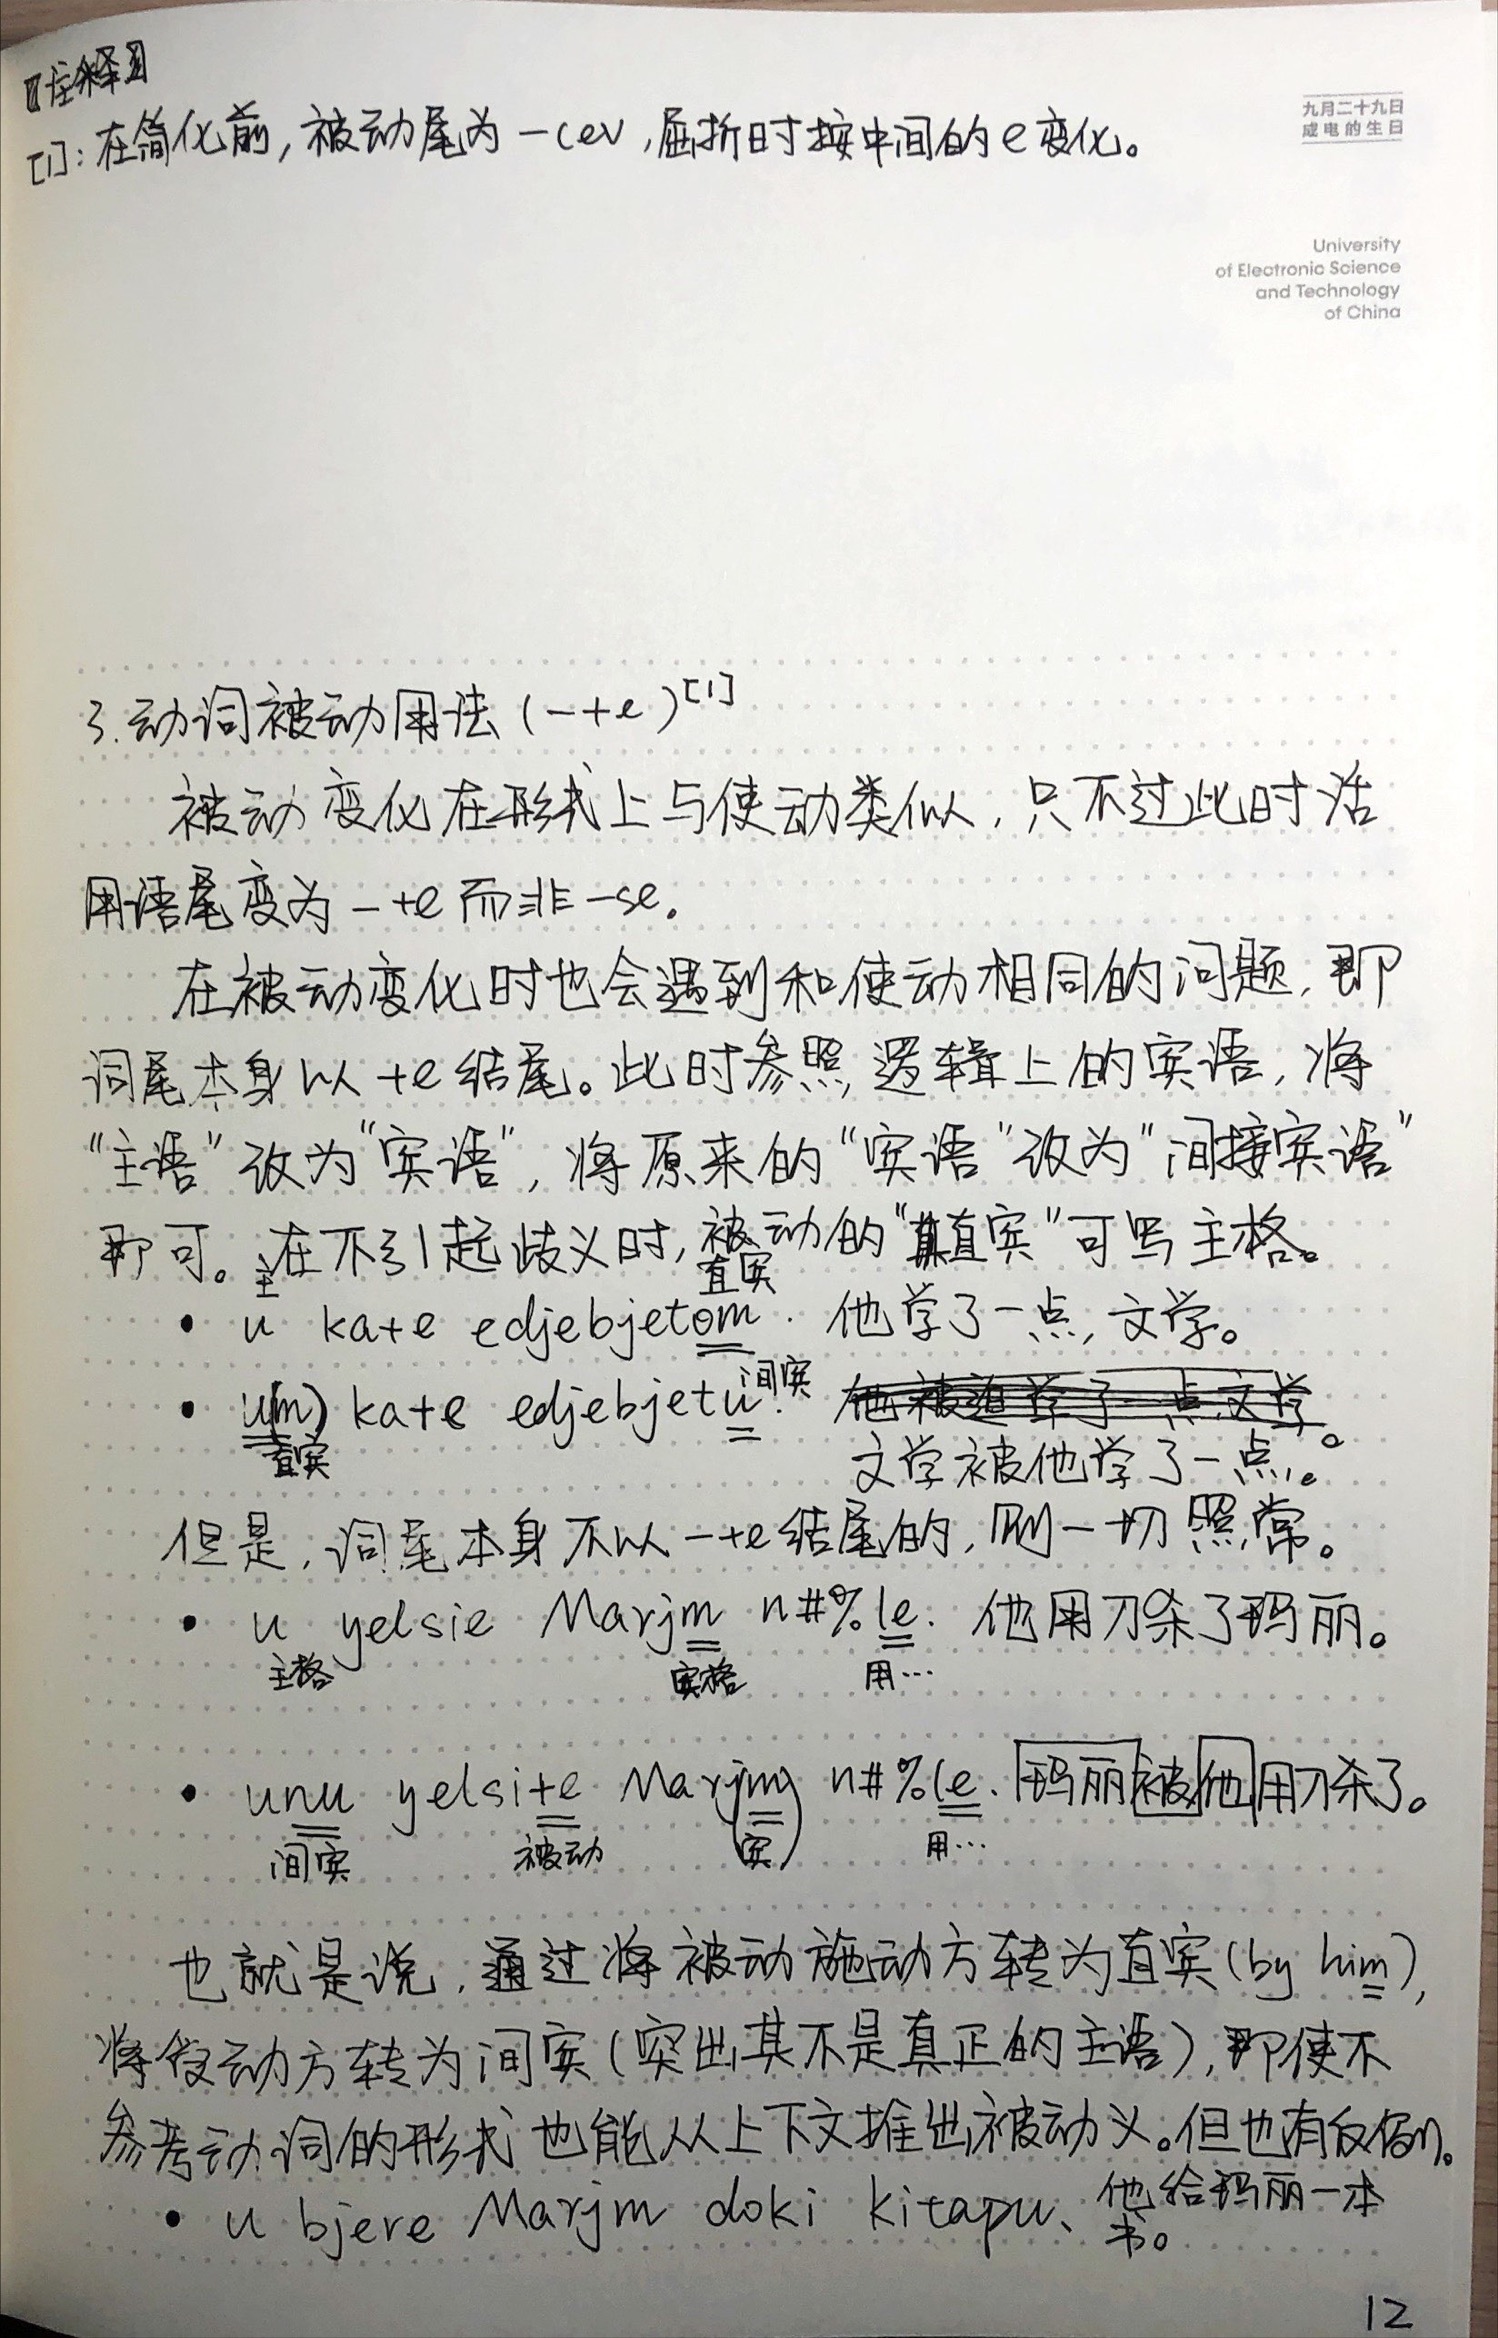 【注释】
[1]:在简化前,被动尾为-cev,屈折时按中间的e变化。
九月二十九日
成电的生日
University
of Electronic Science
and Technology
of China
3.动词被动用法(-te)[1]
被动变化在形式上与使动类似,只不过此时活
用语尾变为-te而非-se。
在被动变化时也会遇到和使动相同的问题,即
词尾本身以te结尾。此时参照逻辑上的宾语,将
“主语”改为“宾语”,将原来的“宾语”改为“间接宾语”
即可。在不引起歧义时,被动的“直宾”可写主格。
主 直宾
• u kate edjebjetom. 他学了一点文学。
间宾
• u(m) kate edjebjetu. 他被迫学了一点文学。
直宾 文学被他学了一点。
但是,词尾本身不以-te结尾的,则一切照常。
• u yelsie Marjm n#%le. 他用刀杀了玛丽。
主格 宾格 用…
• unu yelsite Marj(m) n#%le. 玛丽被他用刀杀了。
间宾 被动 (宾) 用…
也就是说,通过将被动施动方转为直宾(by him),
将受动方转为间宾(突出其不是真正的主语),即使不
参考动词的形式也能从上下文推出被动义。但也有反例。
• u bjere Marjm doki kitapu、他给玛丽一本
书。
12